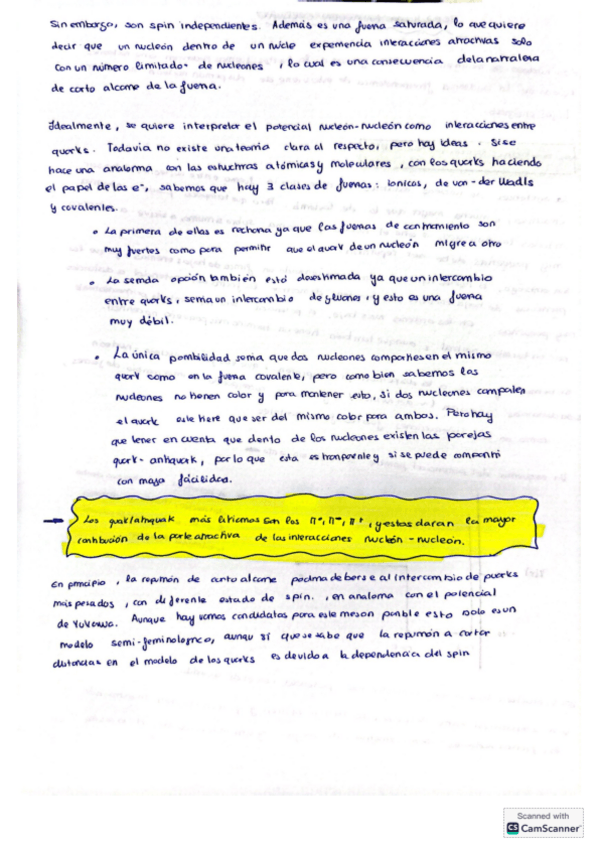 Sin embargo, son spin independientes. Además es una fuerza saturada, lo que quiere
decir que un nucleón dentro de un núcleo experimencia interacciones atractivas solo
con un número limitado de nucleones, lo cual es una consecuencia de la naturaleza
de corto alcance de la fuerza.
Idealmente, se quiere interpretar el potencial nucleón-nucleón como interacciones entre
quarks. Todavia no existe una teoria clara al respecto, pero hay ideas. Si se
hace una analogía con las estructuras atómicas y moleculares, con los quarks haciendo
el papel de las e⁻, sabemos que hay 3 clases de fuerzas: ionicas, de van-der Waals
y covalentes.
• La primera de ellas es rechaza ya que las fuerzas de confinamiento son
muy fuertes como para permitir que el quark de un nucleón migre a otro
• La segunda opción también está desestimada ya que un intercambio
entre quarks, seria un intercambio de gluones, y esto es una fuerza
muy débil.
• La única posibilidad seria que dos nucleones compartiesen el mismo
quark como en la fuerza covalente, pero como bien sabemos los
nucleones no tienen color y para mantener esto, si dos nucleones comparten
el quark este tiene que ser del mismo color para ambos. Pero hay
que tener en cuenta que dentro de los nucleones existen las parejas
quark-antiquark, por lo que esta es transparente y si se puede compartir
con mayor facilidad.
→ Los quark/antiquark más livianos son los π⁰, π⁻, π⁺, y estos daran la mayor
contribución de la parte atractiva de las interacciones nucleón-nucleón.
En principio, la repulsión de corto alcance podria deberse al intercambio de
más pesados, con diferente estado de spin, en analogia con el potencial
de Yukawa. Aunque hay varios candidatos para este meson posible esto solo es un
modelo aunque sí que se sabe que la repulsión a cortas
distancias en el modelo de los quarks es debido a la dependencia del spin
Scanned with
CS CamScanner